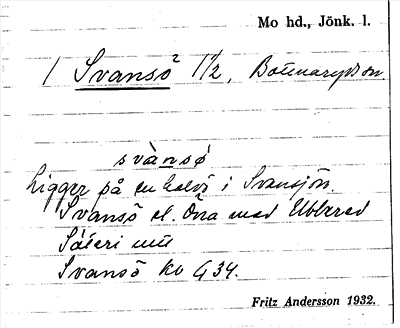 Mo hd., Jönk. l.
/ Svansö² 1½, Bottnarydson
svànsǿ
Ligger på en halvö i Svansjön.
Svansö el. Öna med Ubbered
Säteri mtl
Svansö kv G 34.
Fritz Andersson 1932.